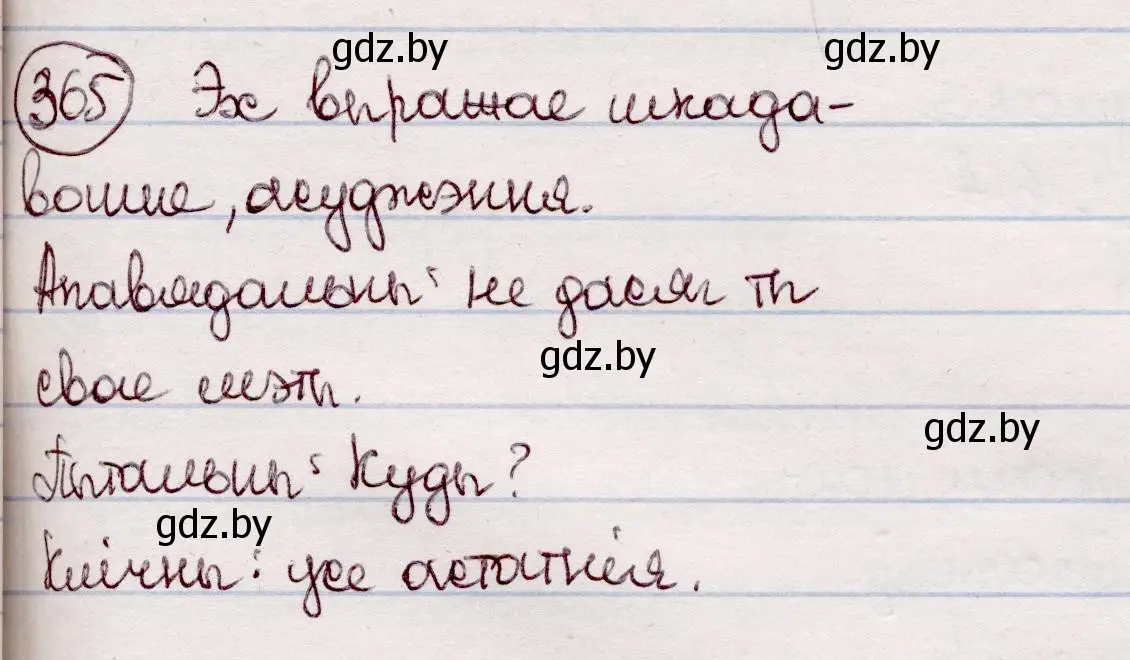 gdz.by gdz.by
365 Эх выражае шкада-
ванне, асуджэння.
Апавядальны: не дасяг ты
gdz.by
свае мэты.
gdz.by
Пытальны: Куды?
gdz.by
Клічны: усе астатнія.